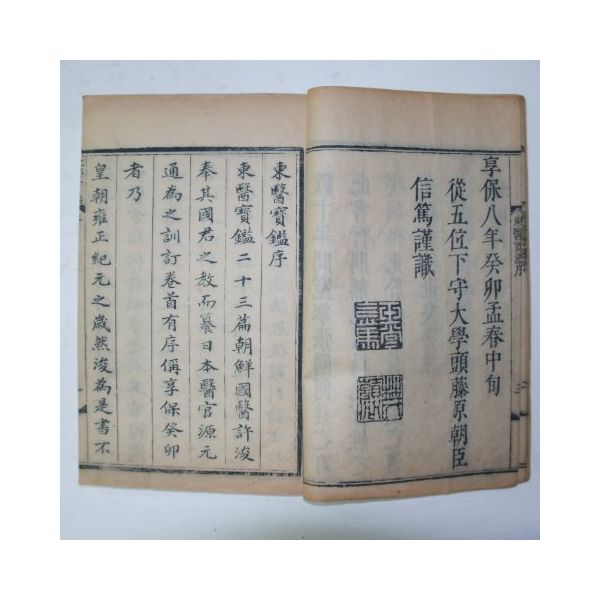 享保八年癸卯孟春中旬
從五位下守大學頭藤原朝臣
信篤謹識
東醫寶鑑序
東醫寶鑑二十三篇朝鮮國醫許浚
奉其國君之教而纂日本醫官源元
通為之訓訂卷首有序偁享保癸卯
者乃
皇朝雍正紀元之歲然浚為是書不